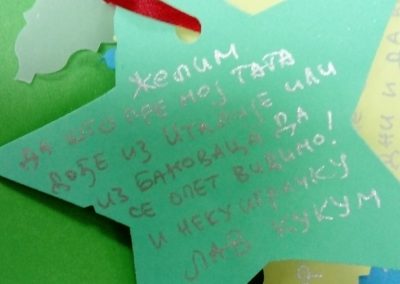 ЖЕЛИМ
ДА ШТО ПРЕ МОЈ ТАТА
ДОЂЕ ИЗ ИТАЛИЈЕ ИЛИ
ИЗ БАНОВАЦА ДА
СЕ ОПЕТ ВИДИМО!
И НЕКУ ИГРАЧКУ
ЛАВ КУКУМ